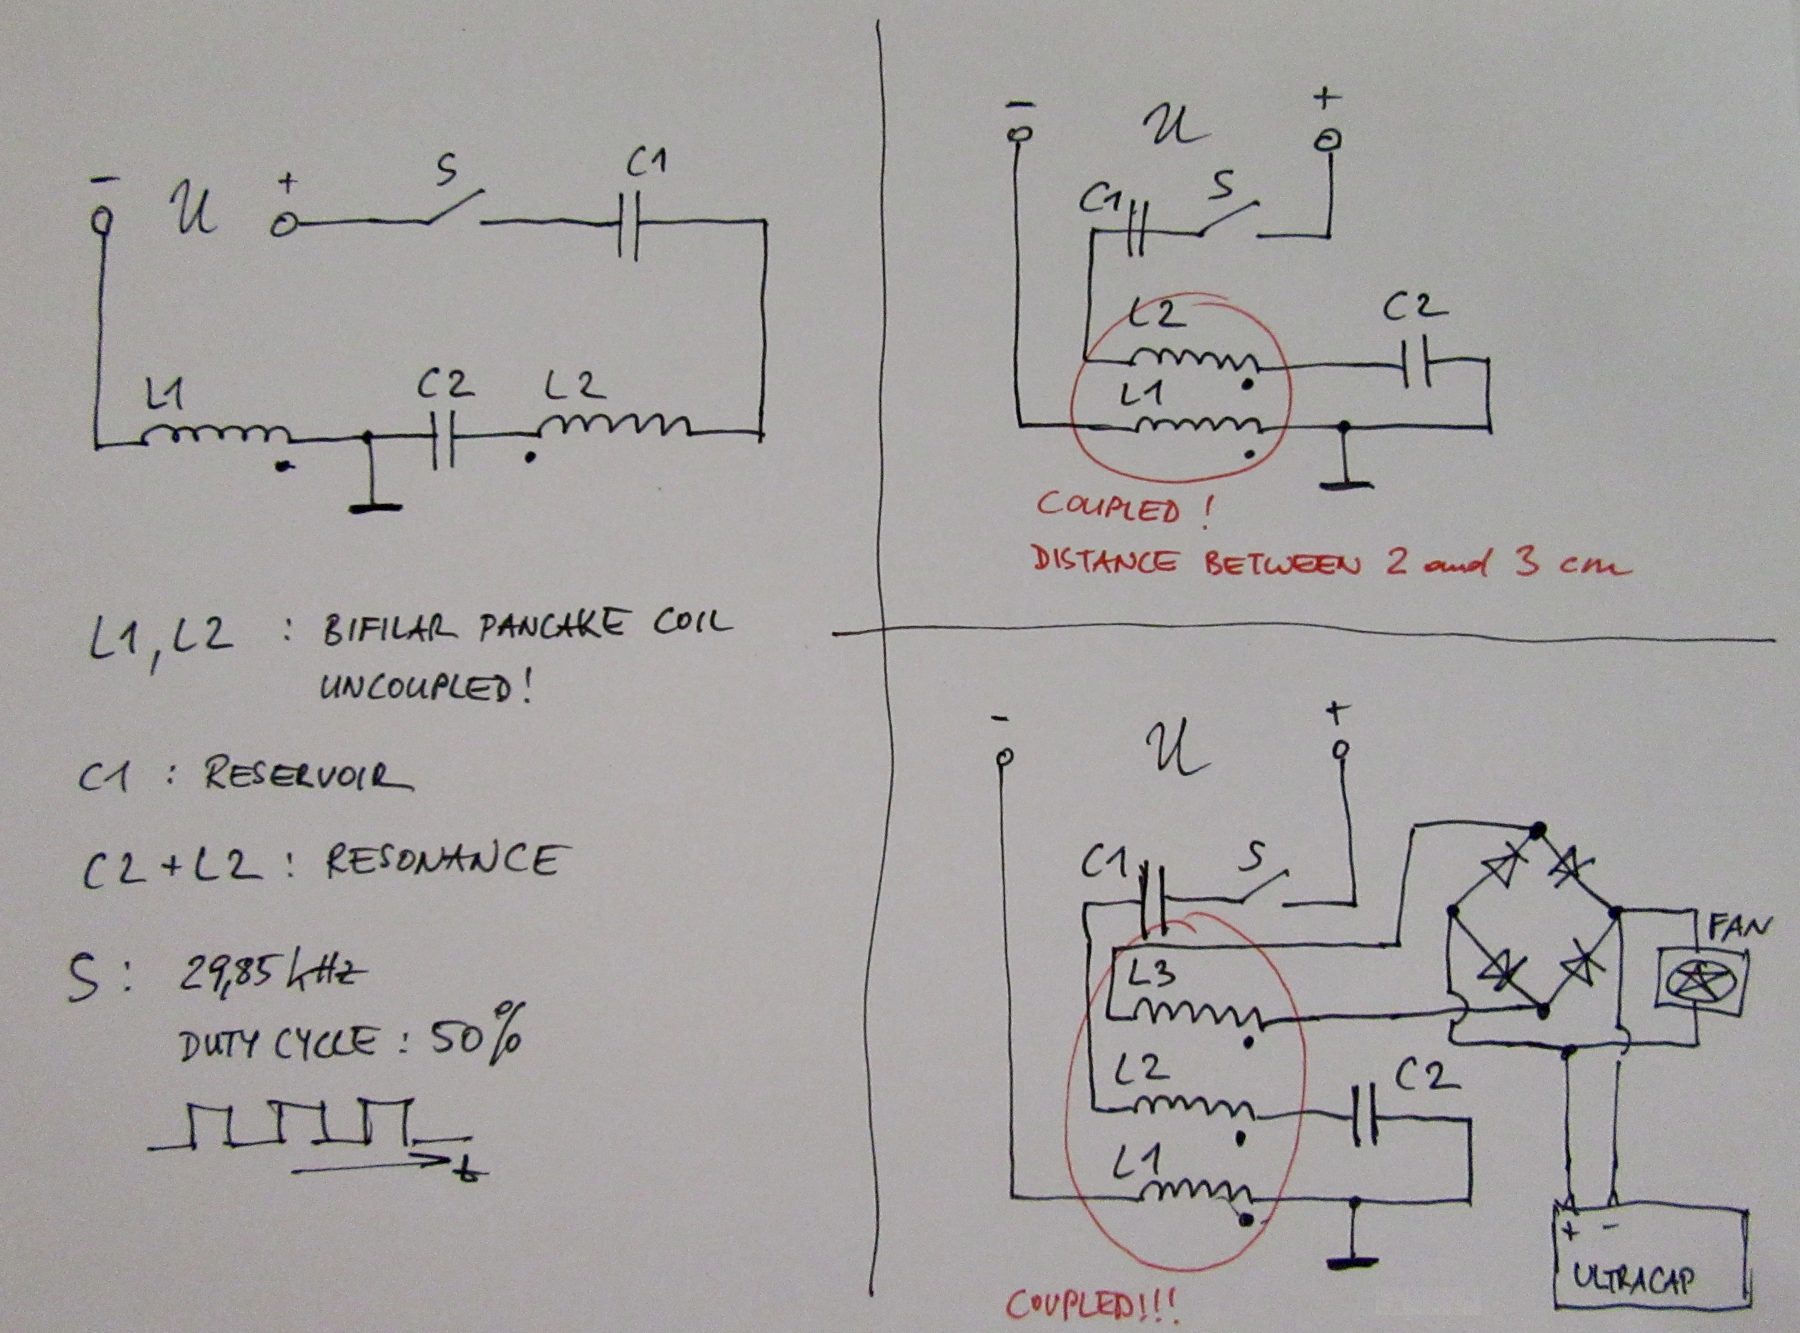 - U + S C1
L1 C2 L2
L1, L2 : BIFILAR PANCAKE COIL
UNCOUPLED!
C1 : RESERVOIR
C2 + L2 : RESONANCE
S : 29,85 kHz
DUTY CYCLE : 50%
t
- U +
C1 S
L2 C2
L1
COUPLED !
DISTANCE BETWEEN 2 and 3 cm
- U +
C1 S
FAN
L3
L2 C2
L1
+ -
ULTRACAP
COUPLED!!!